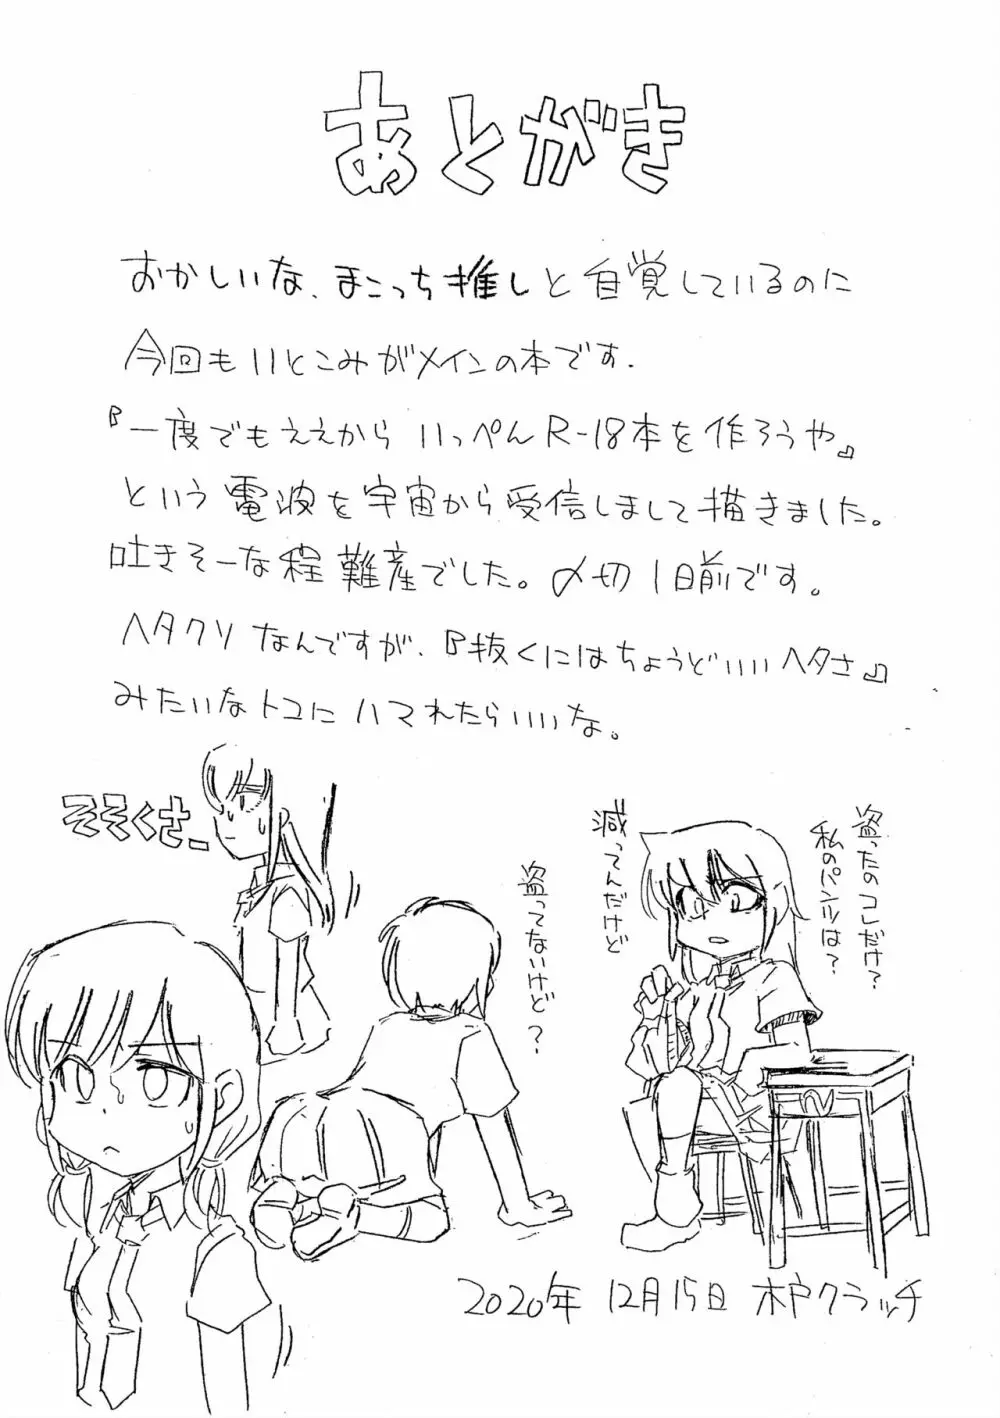 あとがき
おかしいな、まこっち推しと自覚しているのに
今回もいとこみがメインの本です.
『一度でもええから いっぺんR-18本を作ろうや』
という電波を宇宙から受信しまして描きました。
吐きそーな程難産でした。〆切1日前です。
ヘタクソなんですが、『抜くにはちょうどいいヘタさ』
みたいなトコにハマれたらいいな。
盗ったのコレだけ?
私のパンツは?
減ってんだけど
盗ってないけど?
そそくさー
2020年 12月15日 木戸クラッチ